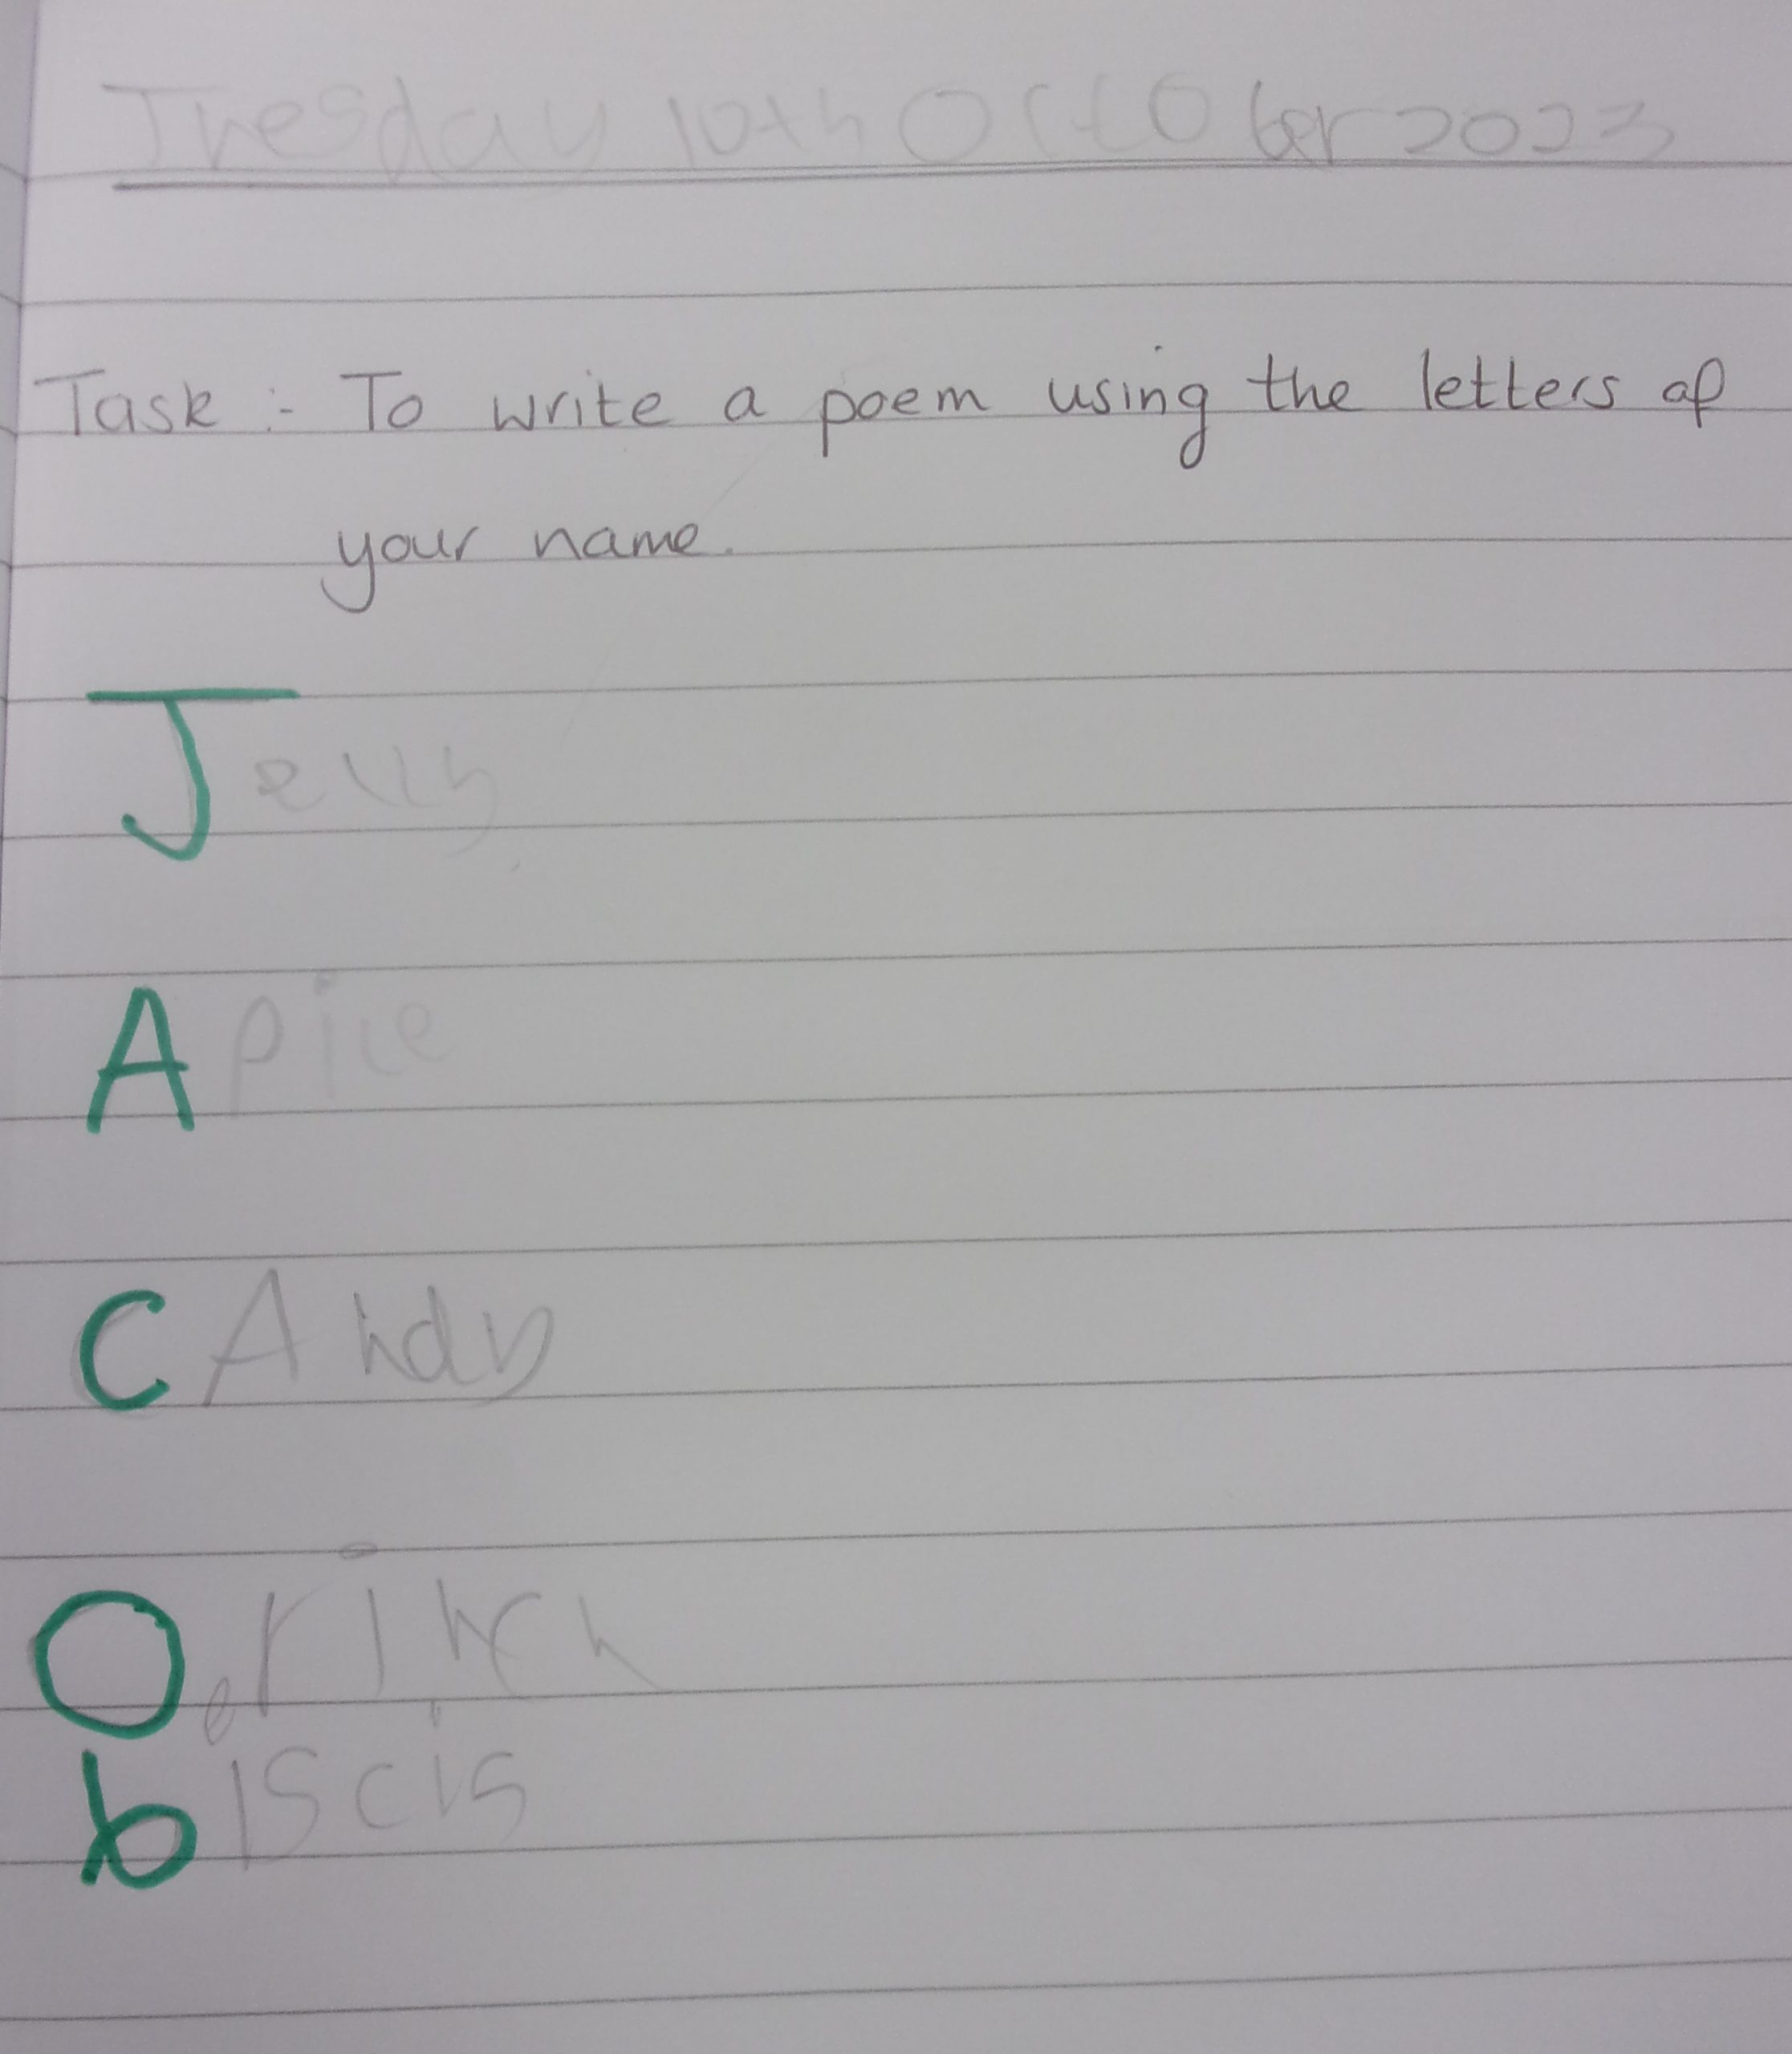 Tuesday 10th October 2023
Task :- To write a poem using the letters of
your name.
Jelly
Aplle
CAndy
O.rinch
biscis